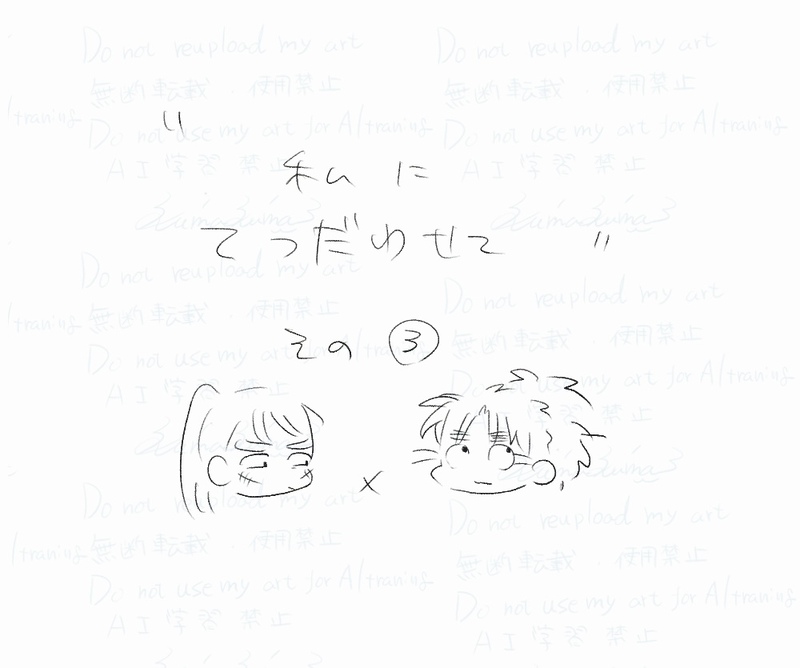 Do not reupload my art Do not reupload my art
無断転載・使用禁止 無断転載・使用禁止
/traning Do not use my art for AI/traning Do not use my art for AI/traning
AI学習禁止 AI学習禁止
"
私に
てつだわせて "
Do not reupload my art Do not reupload my art
/traning 無断転載・使用禁止 無断転載・使用禁止
その③
Do not use my art for AI/traning Do not use my art for AI/traning
AI学習禁止 AI学習禁止
×
Do not reupload my art Do not reupload my art
/traning 無断転載・使用禁止 無断転載・使用禁止
Do not use my art for AI/traning Do not use my art for AI/traning
AI学習禁止 AI学習禁止